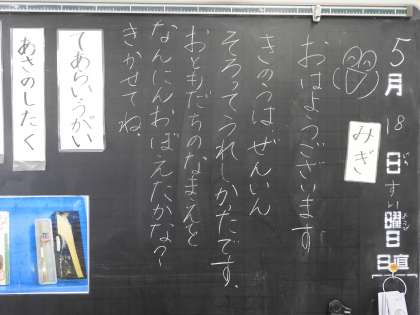 5月18日すい曜日
び
ようび
日直
みぎ
おはようございます
きのうは、ぜんいん
そろってうれしかたです。
おともだちのなまえを
なんにんおぼえたかな？
きかせてね。
てあらいうがい
あさのしたく